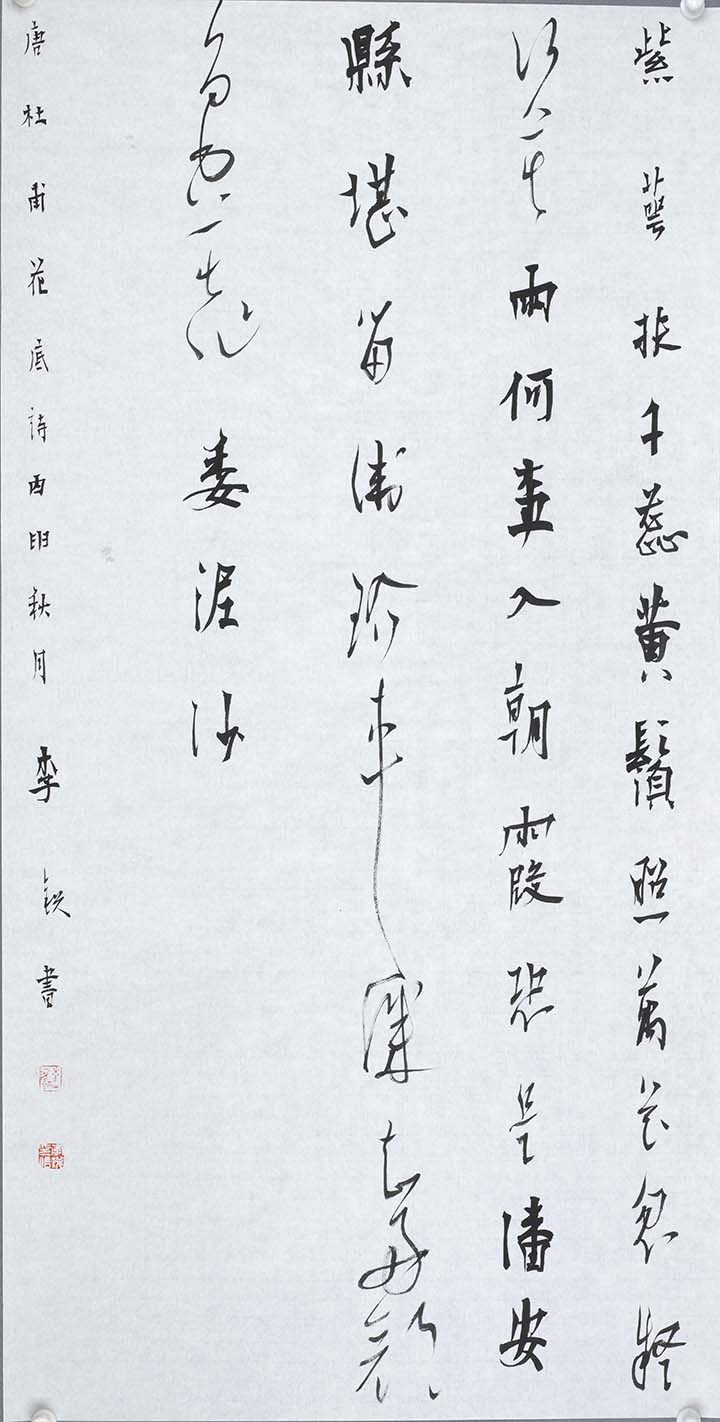 紫萼扶千蕊黃鬚照萬花忽疑
行暮雨何事入朝霞恐是潘安
縣堪留衛玠車深知好顏
色莫作委泥沙
唐杜甫花底詩丙申秋月李銳書